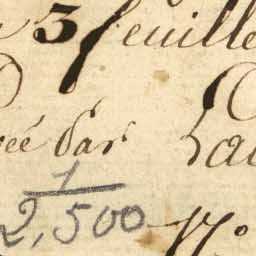 3 feuille
éé par La
1
2,500 N°